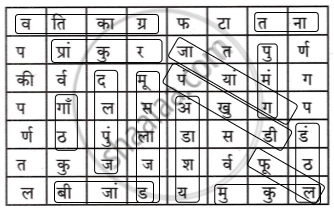 व ति का ग्र फ टा त ना
प प्रां कु र जा त पु र्ण
की र्व द मू पं यां मं ग
प गाँ ल स अं खु ग प
र्ण ठ पुं लो डा स डी डं
त कु ज ज श र्व फू ठ
ल बी जां ड य मु कु ल